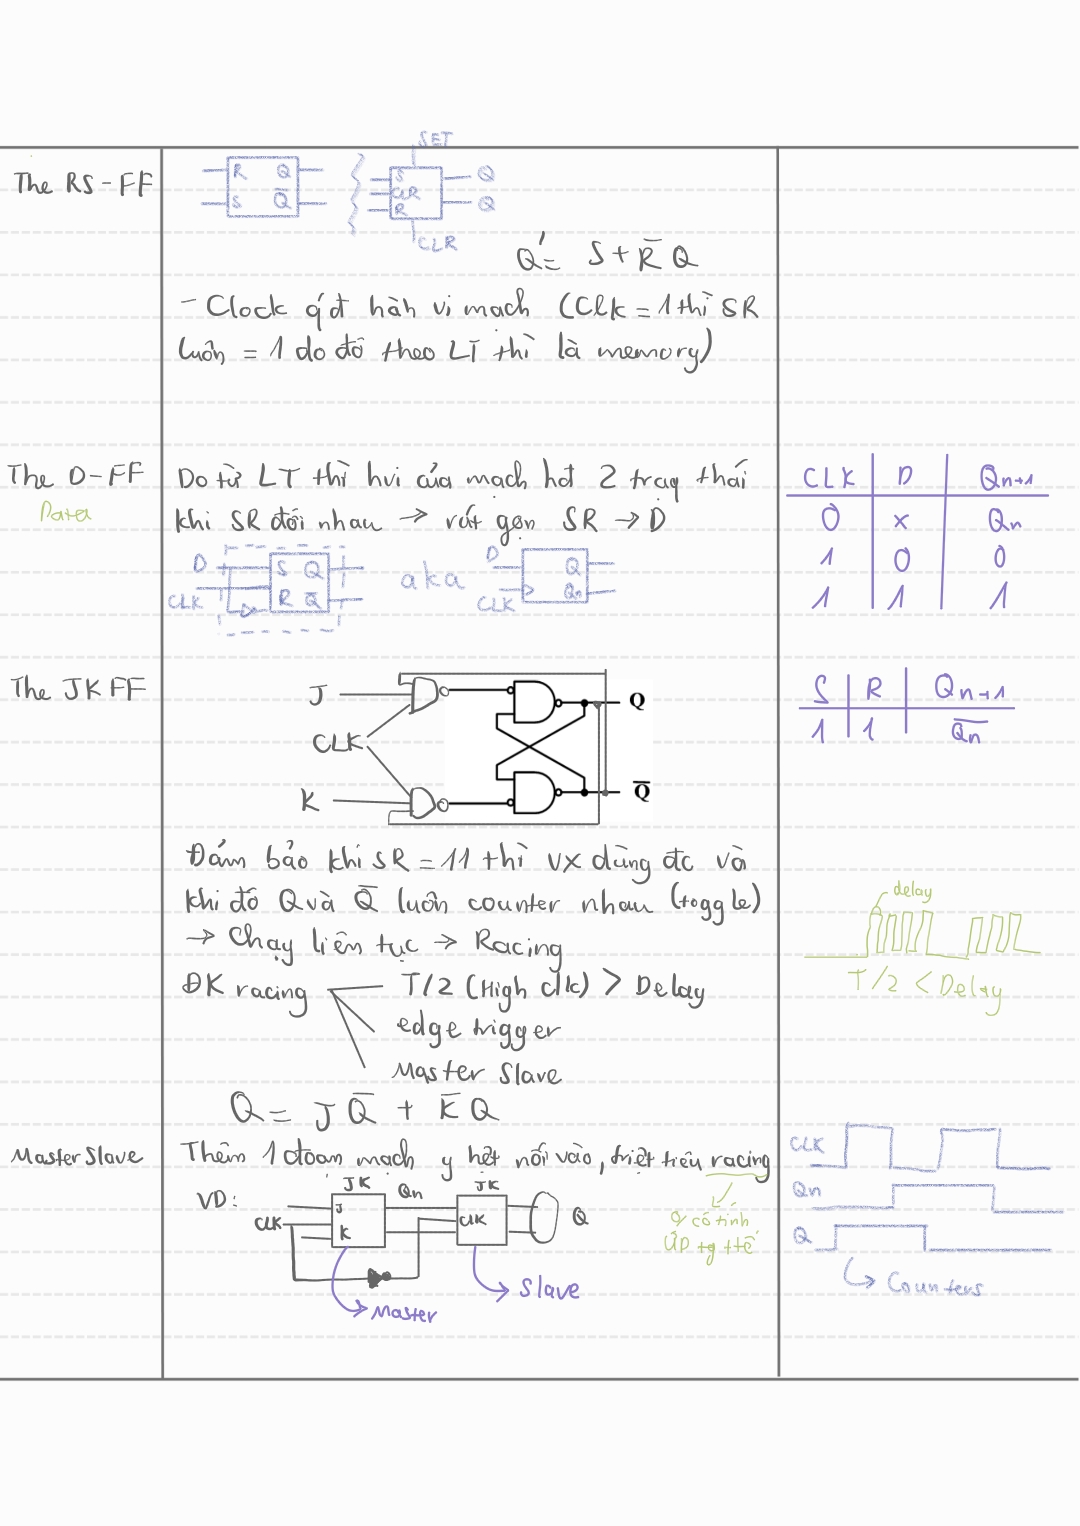 The RS-FF
R Q
S Q̅
SET
S Q
CLR
R Q
CLR
Q' = S + R̅ Q
- Clock qđ hàh vi mạch (Clk = 1 thì SR
luôn = 1 do đó theo LT thì là memory)
The D-FF
Data
Do từ LT thì hvi của mạch hđt 2 trạg thái
khi SR đối nhau → rút gọn SR → D
D S Q
CLK R Q̅
aka
D Q
CLK Qn
CLK D Qn+1
0 x Qn
1 0 0
1 1 1
The JK FF
J
CLK
K
Q
Q̅
S R Qn+1
1 1 Q̅n
Đảm bảo khi SR = 11 thì vx dùng đc và
khi đó Q và Q̅ luôn counter nhau (toggle)
→ Chạy liên tục → Racing
ĐK racing T/2 (High clk) > Delay
edge trigger
Master Slave
delay
T/2 < Delay
Q = J Q̅ + K̅ Q
Master Slave
Thêm 1 đoạn mạch y hệt nối vào, triệt tiêu racing
VD:
JK Qn JK
J
CLK K CLK Q
Master
Slave
CLK
Qn
Q
Counters